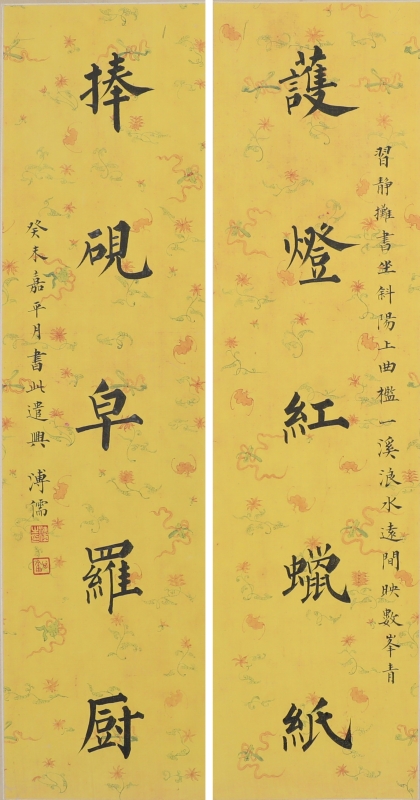 習靜擁書坐斜陽上曲檻一溪浪水遠間映數峯青
護燈紅蠟紙
捧硯皁羅厨
癸未嘉平月書此遣興 溥儒